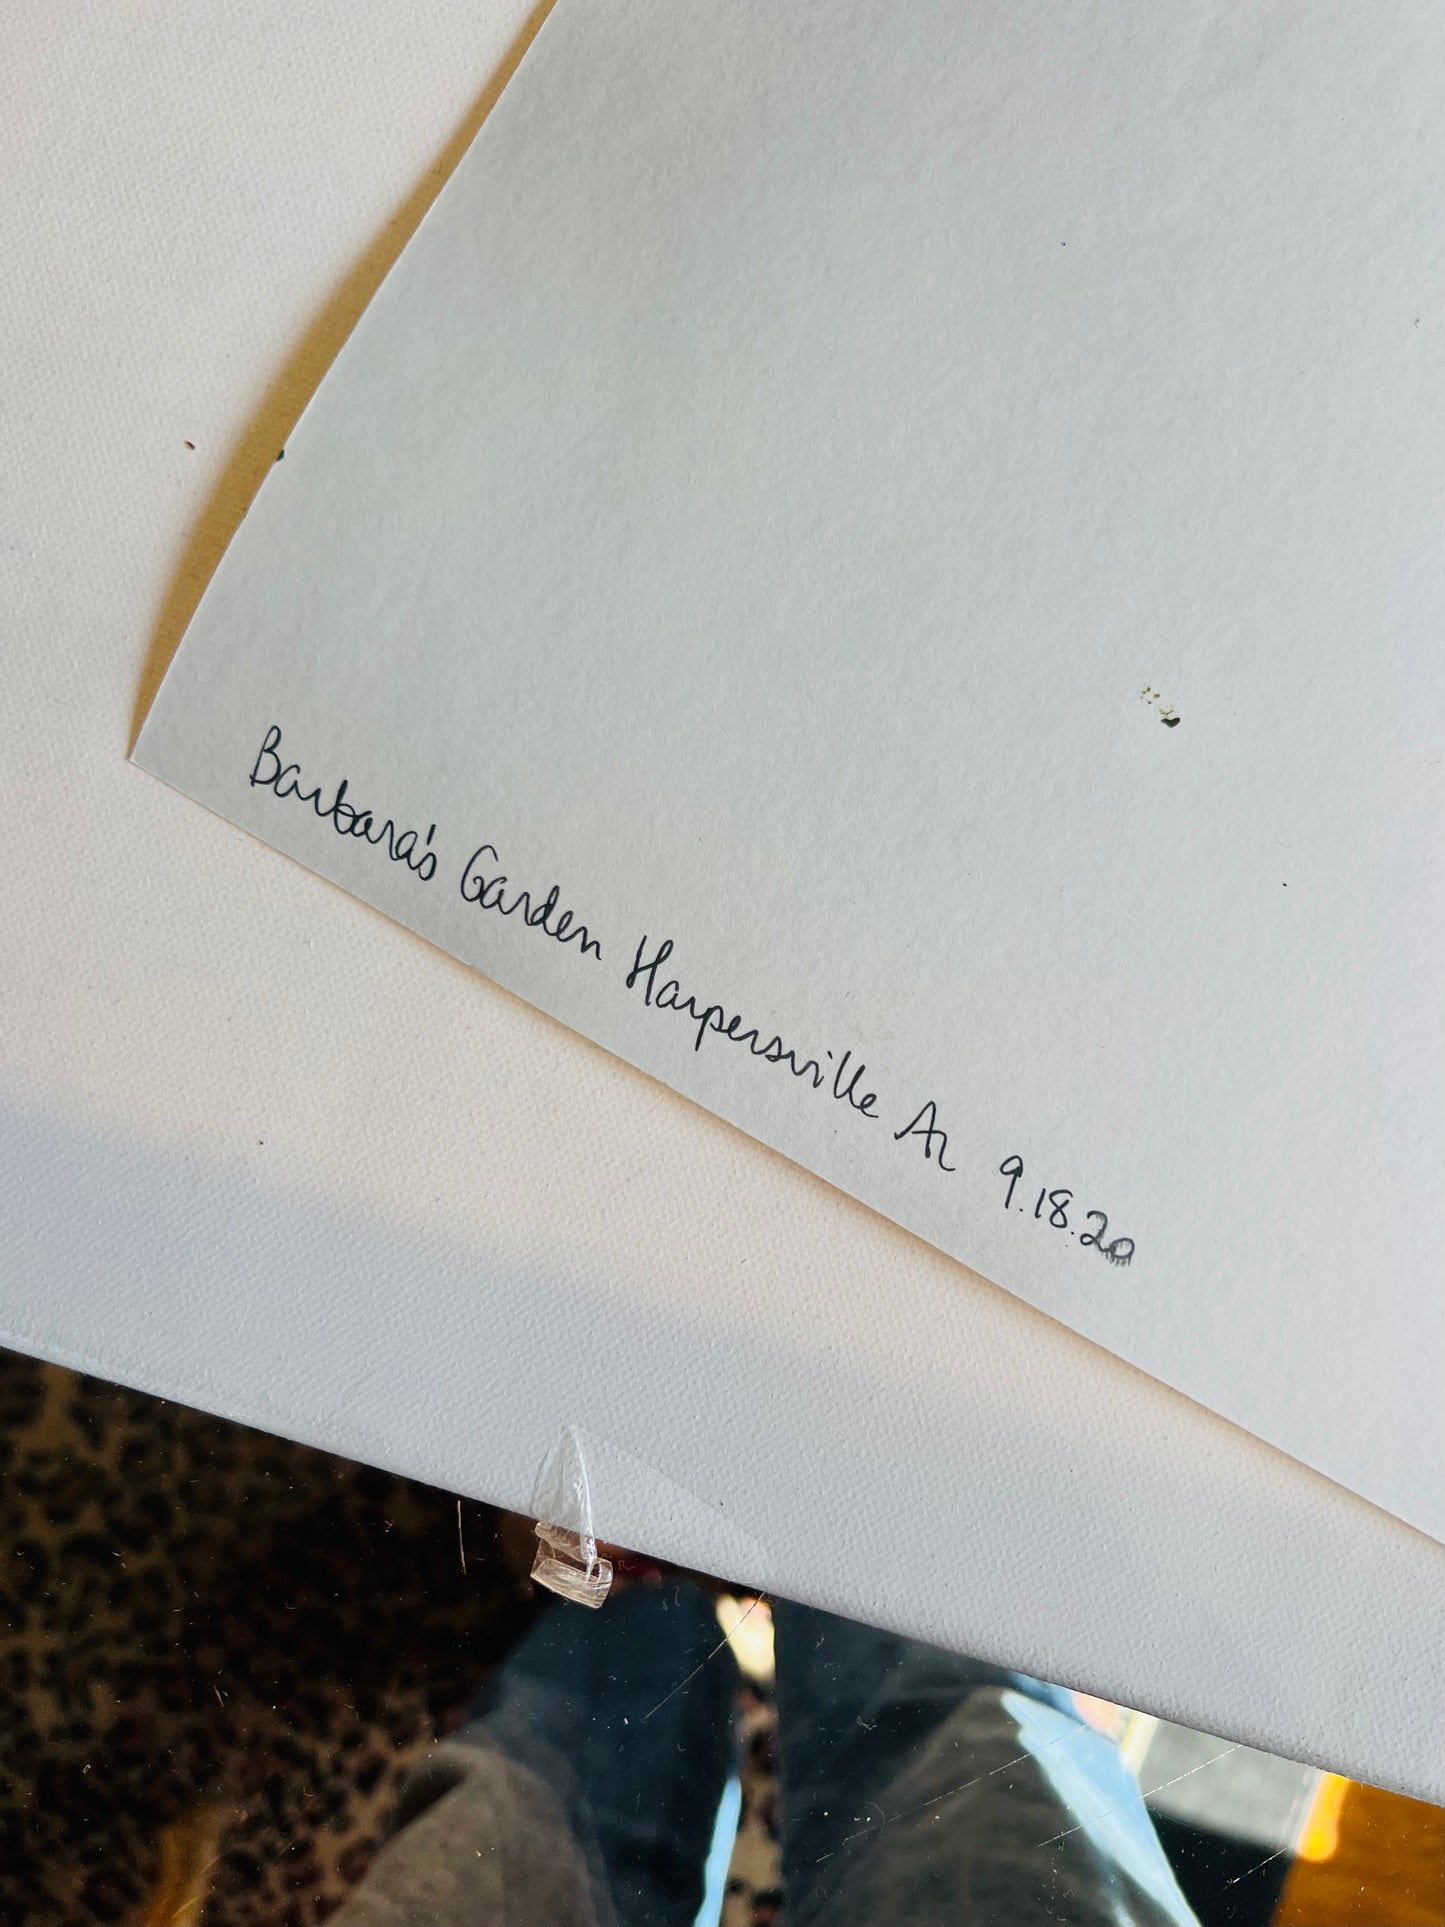 Barbara's Garden Harpersville AL 9.18.20